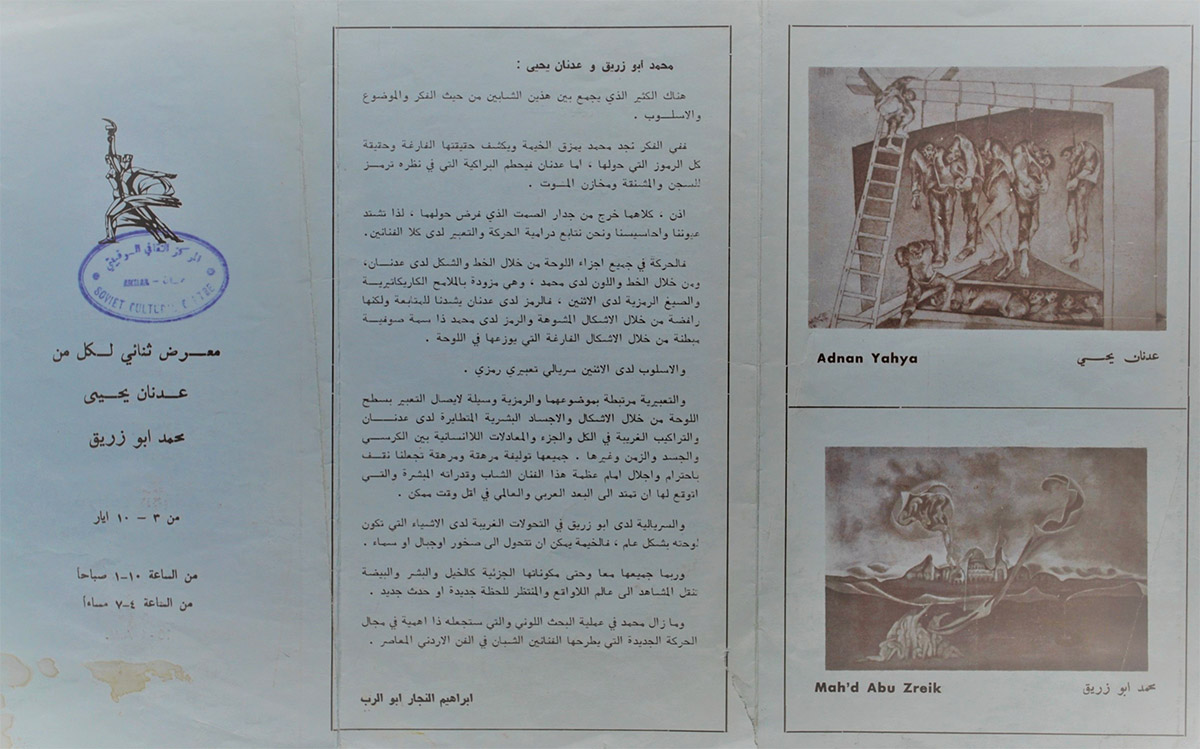 المركز الثقافي السوفيتي
AMMAN – عمان
SOVIET CULTURAL CENTRE
معرض ثنائي لكل من
عدنان يحيى
محمد ابو زريق
من ٣ – ١٠ ايار
من الساعة ١٠–١ صباحاً
من الساعة ٤–٧ مساءاً
محمد ابو زريق و عدنان يحيى :
هناك الكثير الذي يجمع بين هذين الشابين من حيث الفكر والموضوع
والاسلوب .
ففي الفكر نجد محمد يمزق الخيمة ويكشف حقيقتها الفارغة وحقيقة
كل الرموز التي حولها ، اما عدنان فيحطم البراكية التي في نظره ترمز
للسجن والمشنقة ومخازن الموت .
اذن ، كلاهما خرج من جدار الصمت الذي فرض حولهما ، لذا تشتد
عيوننا واحاسيسنا ونحن نتابع درامية الحركة والتعبير لدى كلا الفنانين.
فالحركة في جميع اجزاء اللوحة من خلال الخط والشكل لدى عدنان،
ومن خلال الخط واللون لدى محمد ، وهي مزودة بالملامح الكاريكاتيرية
والصيغ الرمزية لدى الاثنين ، فالرمز لدى عدنان يشدنا للمتابعة ولكنها
رافضة من خلال الاشكال المشوهة والرمز لدى محمد ذا سمة صوفية
مبطنة من خلال الاشكال الفارغة التي يوزعها في اللوحة .
والاسلوب لدى الاثنين سريالي تعبيري رمزي .
والتعبيرية مرتبطة بموضوعهما والرمزية وسيلة لايصال التعبير بسطح
اللوحة من خلال الاشكال والاجساد البشرية المتطايرة لدى عدنان
والتراكيب الغريبة في الكل والجزء والمعادلات اللاانسانية بين الكرسي
والجسد والزمن وغيرها . جميعها توليفة مرهقة ومرهقة تجعلنا نقف
باحترام واجلال امام عظمة هذا الفنان الشاب وقدراته المبشرة والتي
اتوقع لها ان تمتد الى البعد العربي والعالمي في اقل وقت ممكن .
والسريالية لدى ابو زريق في التحولات الغريبة لدى الاشياء التي تكون
لوحته بشكل عام ، فالخيمة يمكن ان تتحول الى صخور اوجبال او سماء .
وربما جميعها معا وحتى مكوناتها الجزئية كالخيل والبشر والبيضة
تنقل المشاهد الى عالم اللاواقع والمنتظر للحظة جديدة او حدث جديد .
وما زال محمد في عملية البحث اللوني والتي ستجعله ذا اهمية في مجال
الحركة الجديدة التي يطرحها الفنانين الشبان في الفن الاردني المعاصر .
ابراهيم النجار ابو الرب
Adnan Yahya
عدنان يحيى
Mah'd Abu Zreik
محمد ابو زريق